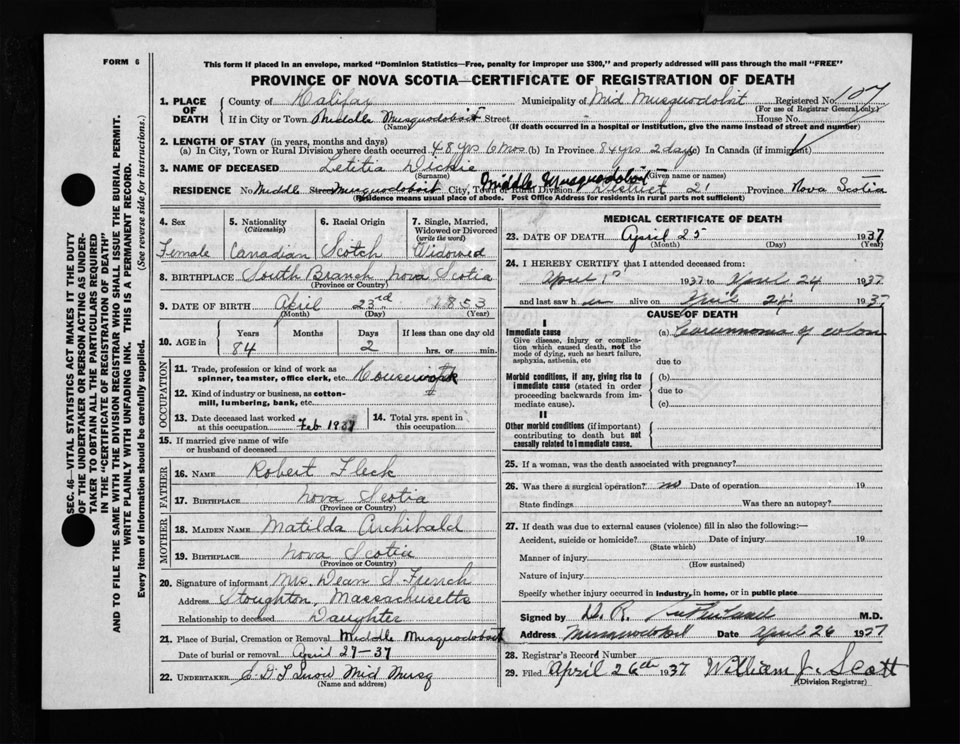 FORM 6
This form if placed in an envelope, marked "Dominion Statistics—Free, penalty for improper use $300," and properly addressed will pass through the mail "FREE"
PROVINCE OF NOVA SCOTIA—CERTIFICATE OF REGISTRATION OF DEATH
1. PLACE OF DEATH
County of Halifax Municipality of Mid Musquodobit Registered No. 107
(For use of Registrar General only)
If in City or Town Middle Musquodoboit Street House No.
(Name) (If death occurred in a hospital or institution, give the name instead of street and number)
2. LENGTH OF STAY (in years, months and days)
(a) In City, Town or Rural Division where death occurred 48 yrs 6 mos (b) In Province 84 yrs 2 days (c) In Canada (if immigrant)
3. NAME OF DECEASED Letitia Dickie
(Surname) (Given name or names)
RESIDENCE No. Middle Street Musquodoboit City, Town or Rural Division Middle Musquodoboit District 21 Province Nova Scotia
(Residence means usual place of abode. Post Office Address for residents in rural parts not sufficient)
4. Sex
Female
5. Nationality
(Citizenship)
Canadian
6. Racial Origin
Scotch
7. Single, Married, Widowed or Divorced
(write the word)
Widowed
8. BIRTHPLACE South Branch Nova Scotia
(Province or Country)
9. DATE OF BIRTH April 23rd 1853
(Month) (Day) (Year)
10. AGE in
Years Months Days If less than one day old
84 2 hrs. or min.
OCCUPATION
11. Trade, profession or kind of work as
spinner, teamster, office clerk, etc. Housework
12. Kind of industry or business, as cotton-
mill, lumbering, bank, etc.
13. Date deceased last worked
at this occupation Feb 1937
14. Total yrs. spent in
this occupation
15. If married give name of wife
or husband of deceased
FATHER
16. NAME Robert Fleck
17. BIRTHPLACE Nova Scotia
(Province or Country)
MOTHER
18. MAIDEN NAME Matilda Archibald
19. BIRTHPLACE Nova Scotia
(Province or Country)
20. Signature of informant Mrs. Dean S.
Address Stoughton, Massachusetts
Relationship to deceased Daughter
21. Place of Burial, Cremation or Removal Middle Musquodoboit
Date of burial or removal April 27-37
22. UNDERTAKER Snow Mid Musq
(Name and address)
MEDICAL CERTIFICATE OF DEATH
23. DATE OF DEATH April 25 1937
(Month) (Day) (Year)
24. I HEREBY CERTIFY that I attended deceased from:
April 1937 to April 24 1937
and last saw her alive on April 24 1937
CAUSE OF DEATH
I
Immediate cause
Give disease, injury or complica-
tion which caused death, not the
mode of dying, such as heart failure,
asphyxia, asthenia, etc
(a) Carcinoma of colon
due to
Morbid conditions, if any, giving rise to
immediate cause (stated in order
proceeding backwards from im-
mediate cause).
(b)
due to
(c)
II
Other morbid conditions (if important)
contributing to death but not
causally related to immediate cause.
25. If a woman, was the death associated with pregnancy?
26. Was there a surgical operation? no Date of operation 19
State findings Was there an autopsy?
27. If death was due to external causes (violence) fill in also the following:—
Accident, suicide or homicide? Date of injury 19
(State which)
Manner of injury
(How sustained)
Nature of injury
Specify whether injury occurred in industry, in home, or in public place
Signed by D. R. M.D.
Address Musquodoboit Date April 26 1937
28. Registrar's Record Number
29. Filed April 26th 1937 William J. Scott
(Division Registrar)
SEC. 46—VITAL STATISTICS ACT MAKES IT THE DUTY
OF THE UNDERTAKER OR PERSON ACTING AS UNDER-
TAKER TO OBTAIN ALL THE PARTICULARS REQUIRED
IN THE "CERTIFICATE OF REGISTRATION OF DEATH"
AND TO FILE THE SAME WITH THE DIVISION REGISTRAR WHO SHALL ISSUE THE BURIAL PERMIT.
WRITE PLAINLY WITH UNFADING INK. THIS IS A PERMANENT RECORD.
Every item of information should be carefully supplied. (See reverse side for instructions.)